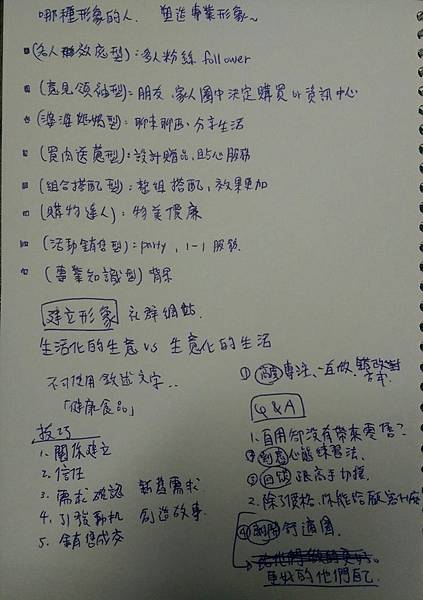 哪種形象的人. 塑造專業形象~
(名人效應型):多人粉絲 follower
(意見領袖型):朋友、家人圈中決定購買的資訊中心
(婆婆媽媽型):聊東聊西、分享生活
(買肉送蔥型):設計贈品、貼心服務
(組合搭配型):整組搭配,效果更加
(購物達人):物美價廉
(活動銷售型):party , 1-1 服務.
(專業知識型) 背景
建立形象 社群網站.
生活化的生意 vs 生意化的生活
不可使用敘述文字..
「健康食品」
技巧
1. 關係建立
2. 信任
3. 需求確認 新舊需求
4. 引發動机 創造故事.
5. 銷售成交
① 專注、一直做.
Q & A
1. 自用卻沒有帶來零售?
② 心態練習法.
③ 張高手切換.
2. 除了價格、你能給顧客什麼
④ 舒適圈.
更好的他們自己.